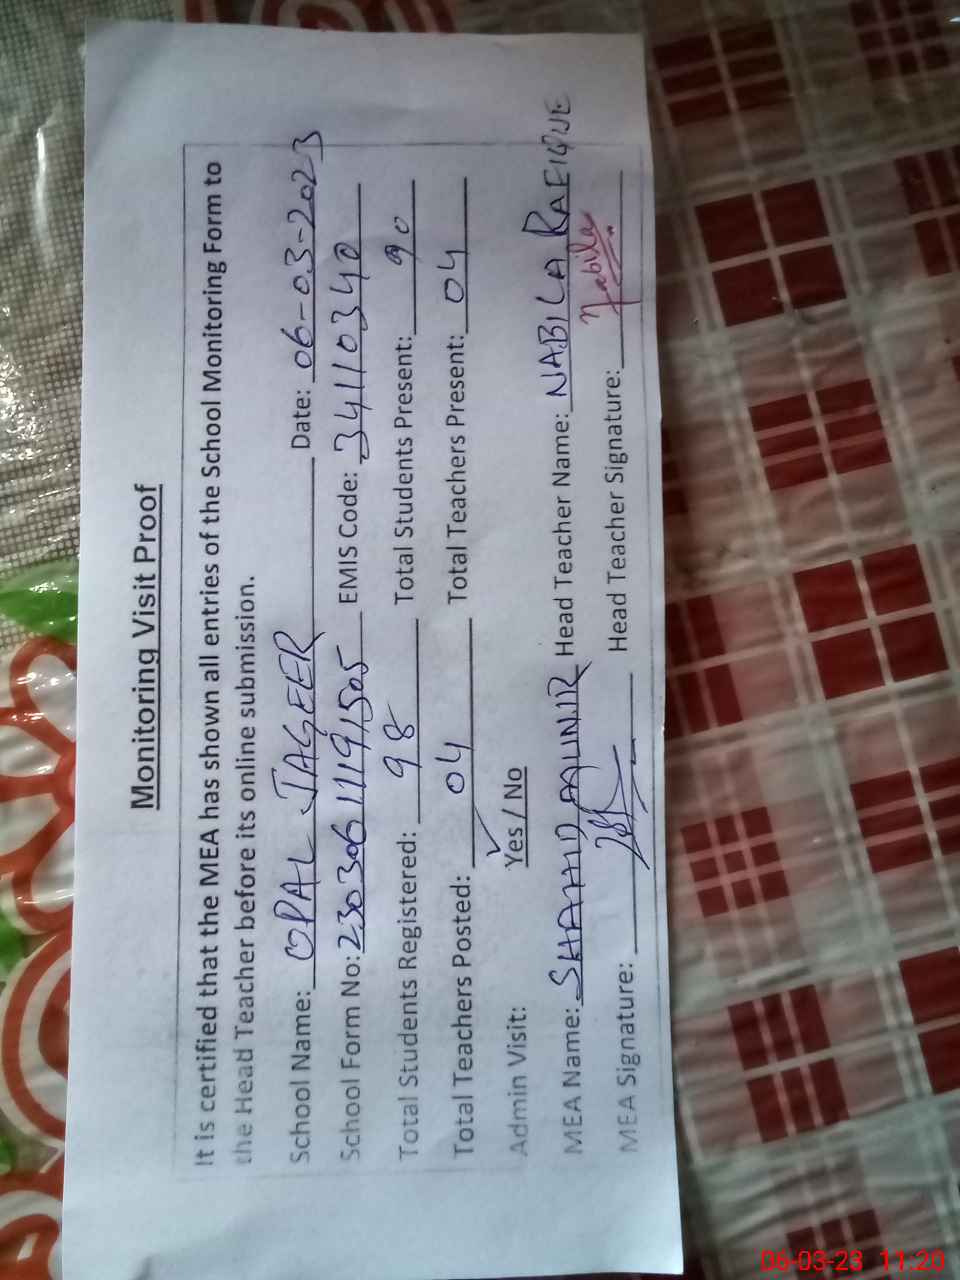 Monitoring Visit Proof
It is certified that the MEA has shown all entries of the School Monitoring Form to
the Head Teacher before its online submission.
School Name: OPAL JAGEER Date: 06-03-2023
School Form No: 23030611191505 EMIS Code: 34110340
Total Students Registered: 98 Total Students Present: 90
Total Teachers Posted: 04 Total Teachers Present: 04
Admin Visit: Yes / No
MEA Name: SHAHID MUNIR Head Teacher Name: NABILA RAFIQUE
MEA Signature: Head Teacher Signature: Nabila
06-03-23 11:20